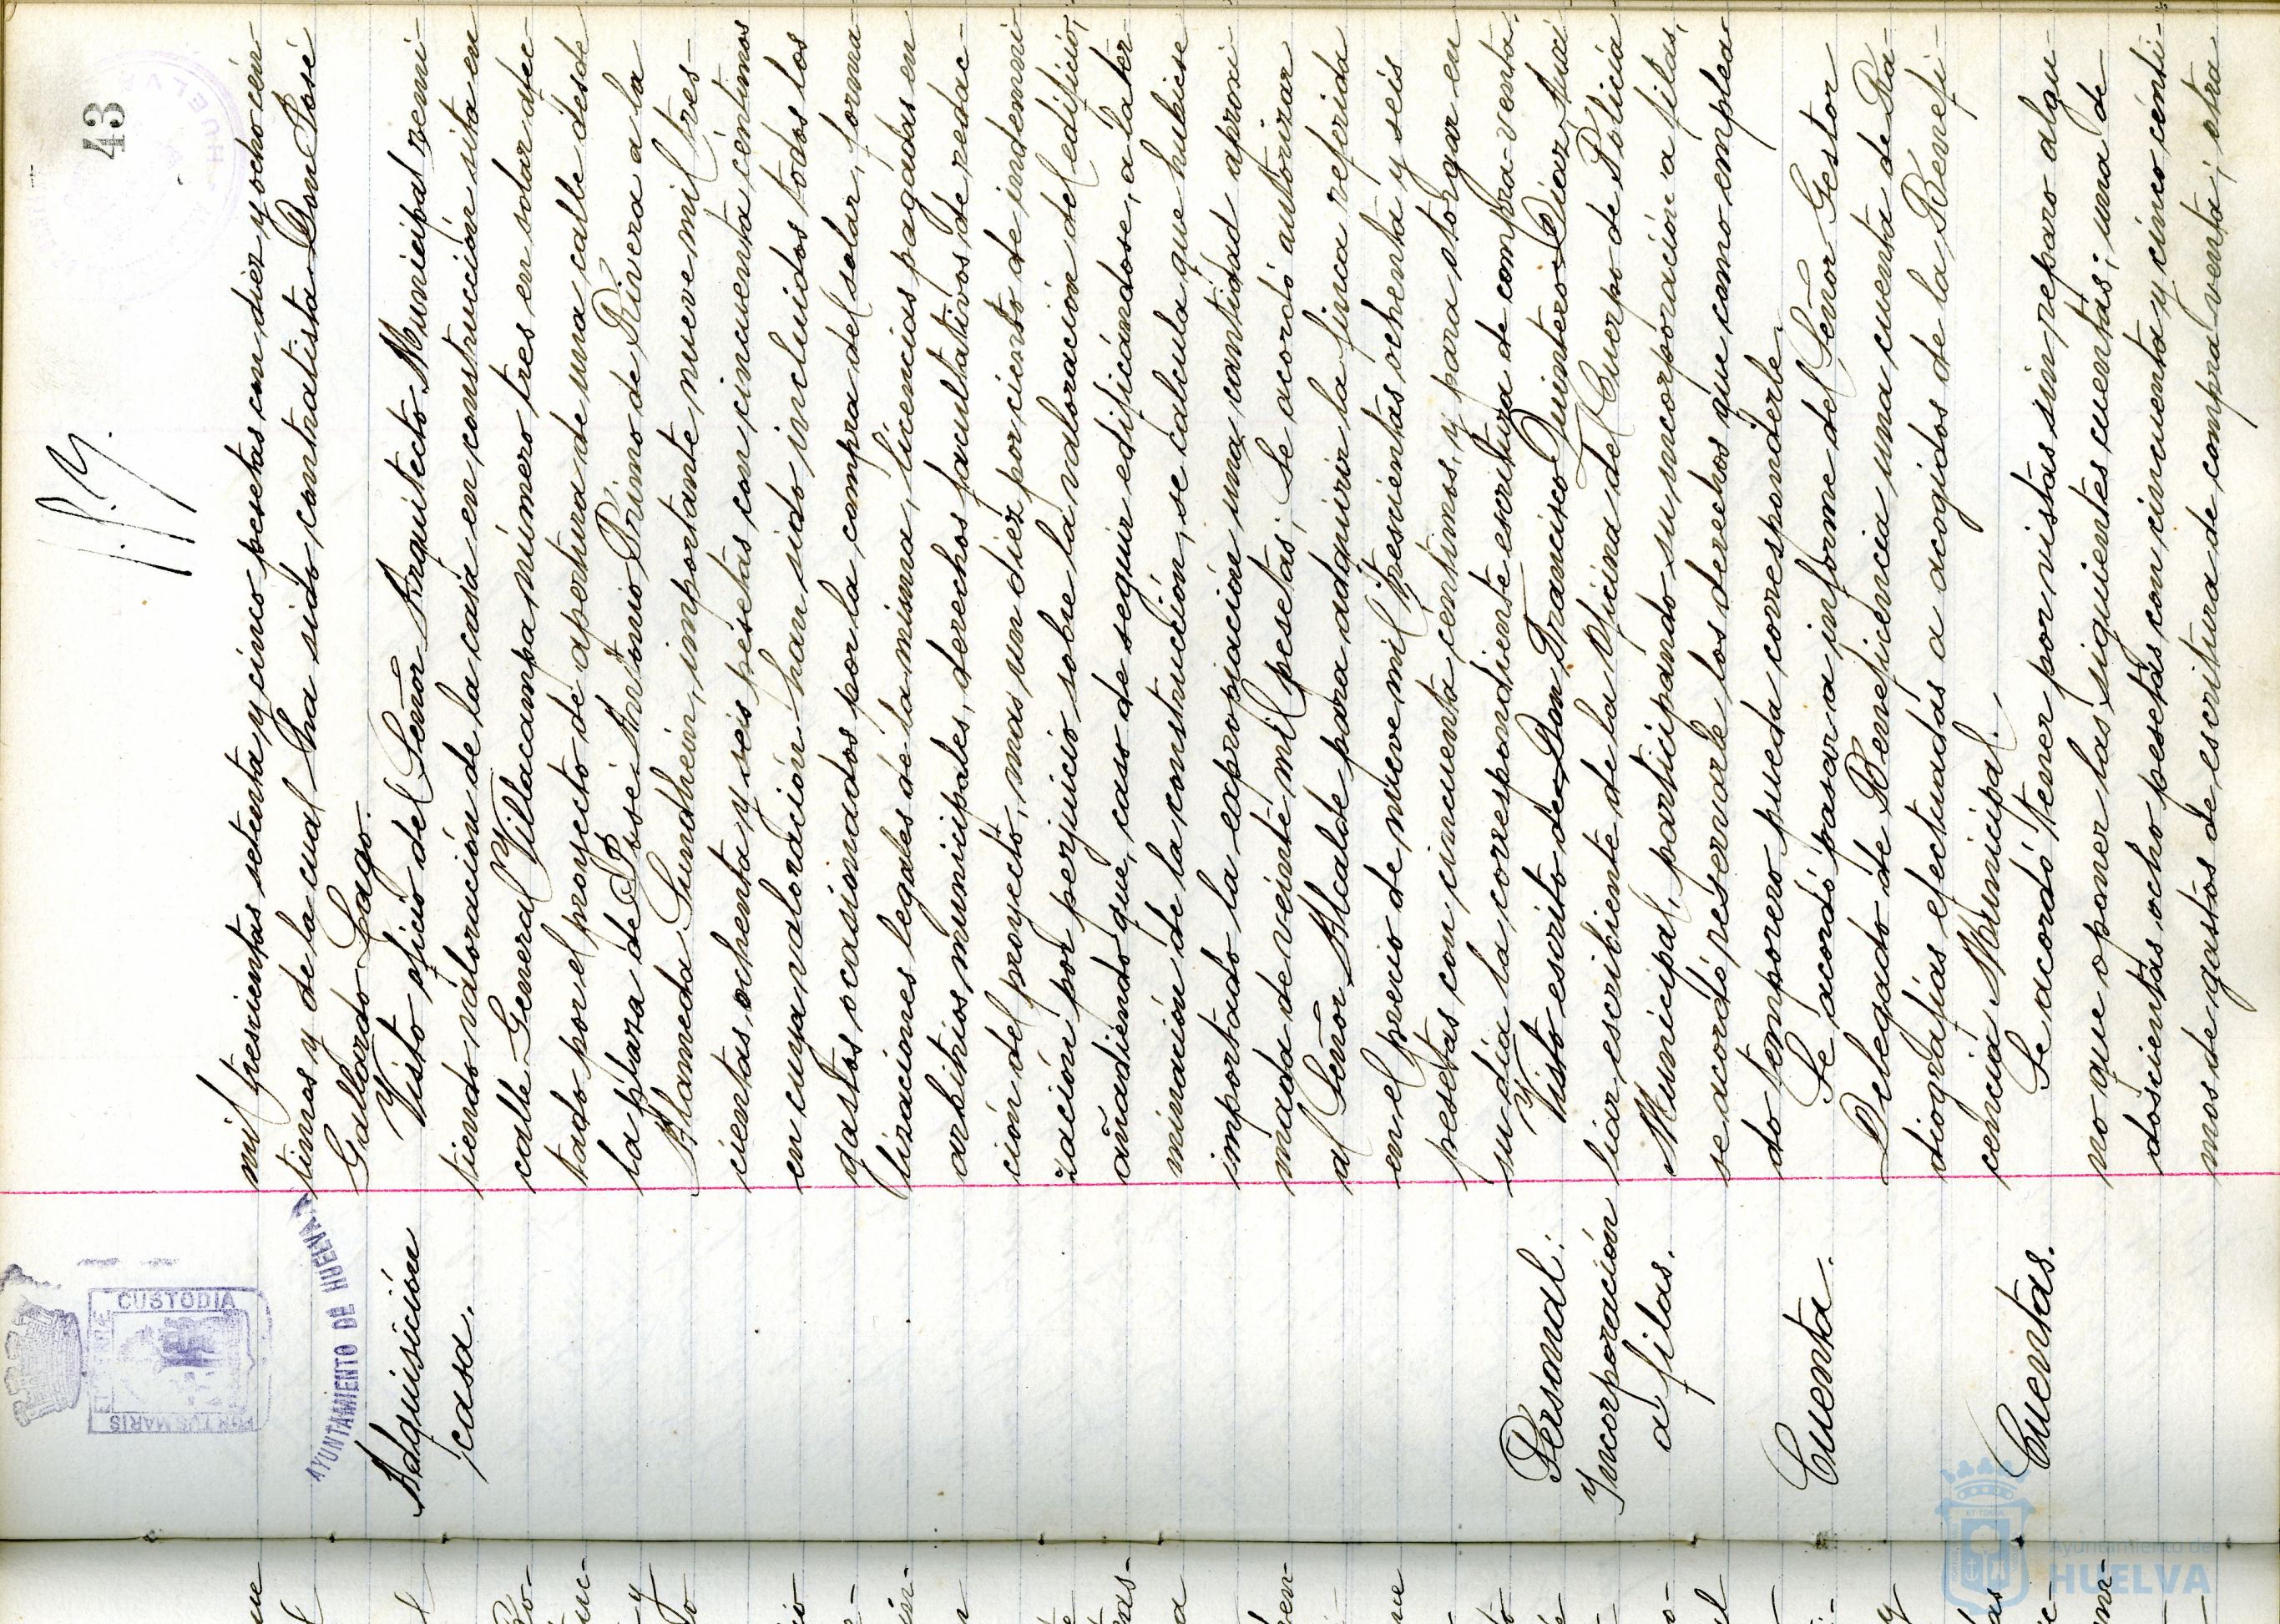 43
mil trescientas setenta y cinco pesetas con diez y ocho cén-
timos y de la cual ha sido contratista Don José
Gallardo Lago.
Adquisición
casa.
Visto oficio del Señor Arquitecto Municipal remi-
tiendo valoración de la casa en construcción sita en
calle General Villacampa número tres en solar afec-
tado por el proyecto de apertura de una calle desde
la plaza de José Antonio Primo de Rivera a la
Alameda Sundheim, importante nueve mil tres-
cientas ochenta y seis pesetas con cincuenta céntimos
en cuya valoración han sido incluidos todos los
gastos ocasionados por la compra del solar, forma
lizaciones legales de la misma, licencias pagadas en
arbitrios municipales, derechos facultativos de redac-
ción del proyecto, mas un diez por ciento de indemni
zación por perjuicio sobre la valoración del edificio,
añadiendo que, caso de seguir edificándose, a la ter
minación de la construcción, se calcula que hubiese
importado la expropiación una cantidad aproxi
mada de veinte mil pesetas; Se acordó autorizar
al Señor Alcalde para adquirir la finca referida
en el precio de nueve mil trescientas ochenta y seis
pesetas con cincuenta céntimos, y para otorgar en
su dia la correspondiente escritura de compra-venta.
Personal:
Yncorporación
a filas.
Visto escrito de Don Francisco Quintero Diaz, Auxi
liar escribiente de la Oficina del Cuerpo de Policia
Municipal, participando su incorporación a filas,
se acordó reservarle los derechos que como emplea-
do temporero pueda corresponderle.
Cuenta.
Se acordó pasar a informe del Señor Gestor
Delegado de Beneficencia una cuenta de Ra-
diografías efectuadas a acogidos de la Benefi-
cencia Municipal.
Cuentas.
Se acordó tener por vistas sin reparo algu-
no que oponer las siguientes cuentas; una de
doscientas ocho pesetas con cincuenta y cinco cénti-
mos de gastos de escritura de compra venta; otra
AYUNTAMIENTO DE HUELVA
CUSTODIA
PORTUS MARIS
HUELVA
Ayuntamiento de
HUELVA